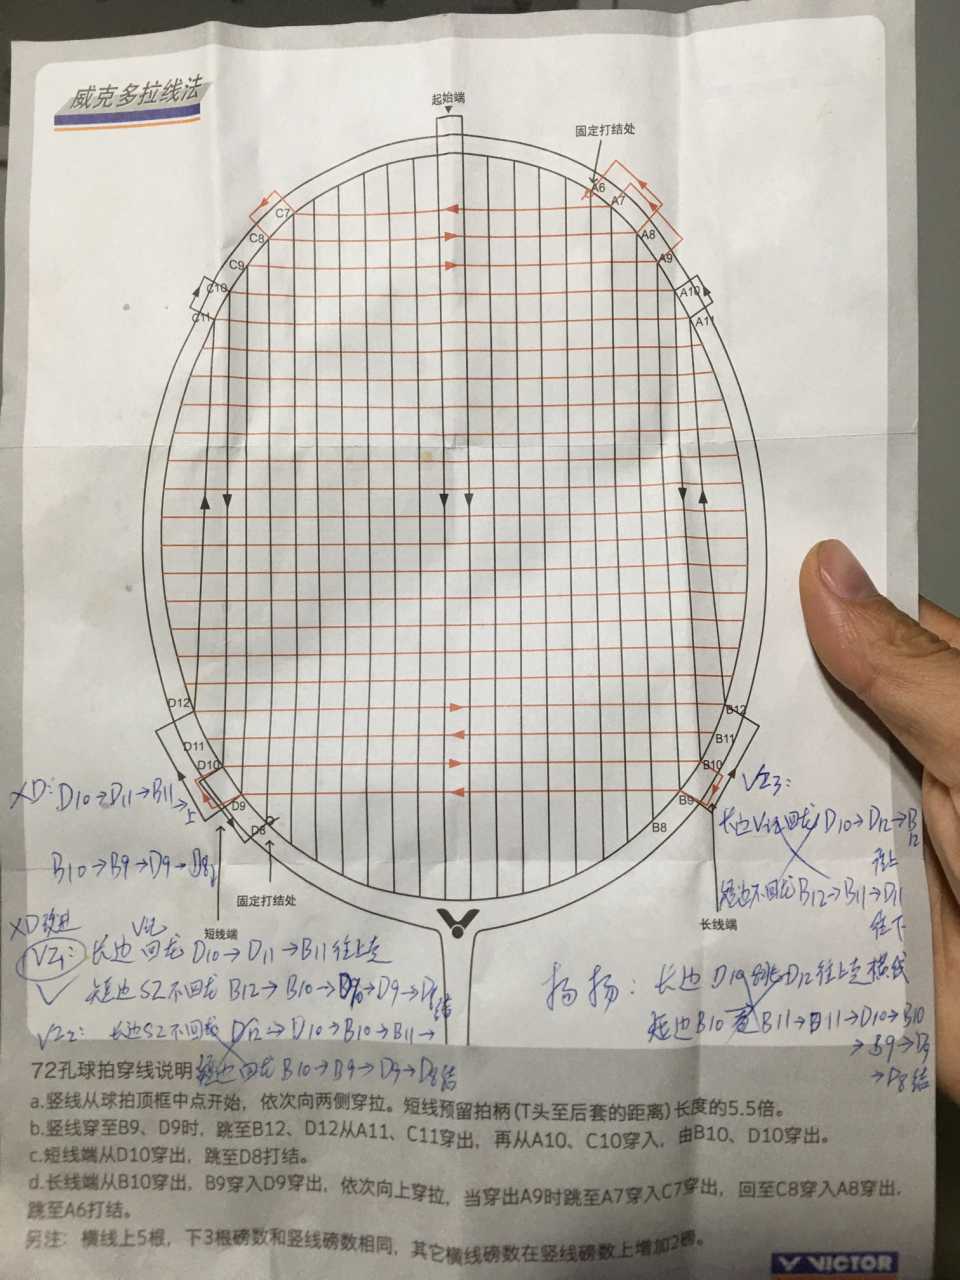 威克多拉线法
起始端
固定打结处
A6
C7
A7
C8
A8
C9
A9
C10
A10
C11
A11
D12
B12
D11
B11
D10
B10
D9
B9
D8
B8
XD: D10→D11→B11→上
VZ3:
长边VZ回龙 D10→D12→B12
往上
B10→B9→D9→D8
短边不回龙 B12→B11→D11
往下
固定打结处
短线端
长线端
XD改进
VZ1: 长边回龙 D10→D11→B11往上走
短边SZ不回龙 B12→B10→D10→D9→D8结
扬扬: 长边D10跳D12往上走横线
短边B10
B11→D10→B10
→B9→D9
→D8结
VZ2: 长边SZ不回龙 D12→D10→B10→B11→
短边回龙 B10→B9→D9→D8结
72孔球拍穿线说明
a.竖线从球拍顶框中点开始，依次向两侧穿拉。短线预留拍柄(T头至后套的距离)长度的5.5倍。
b.竖线穿至B9、D9时，跳至B12、D12从A11、C11穿出，再从A10、C10穿入，由B10、D10穿出。
c.短线端从D10穿出，跳至D8打结。
d.长线端从B10穿出，B9穿入D9穿出，依次向上穿拉，当穿出A9时跳至A7穿入C7穿出，回至C8穿入A8穿出，
跳至A6打结。
另注：横线上5根，下3根磅数和竖线磅数相同，其它横线磅数在竖线磅数上增加2磅。
VICTOR